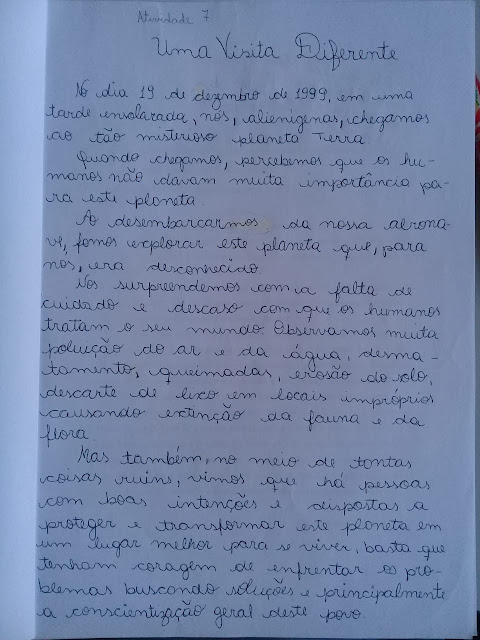 Atividade 7
Uma Visita Diferente
No dia 19 de dezembro de 1999, em uma
tarde ensolarada, nós, alienígenas, chegamos
ao tão misterioso planeta Terra.
Quando chegamos, percebemos que os hu-
manos não davam muita importância pa-
ra este planeta.
Ao desembarcarmos da nossa aerona-
ve, fomos explorar este planeta que, para
nós, era desconhecido.
Nos surpreendemos com a falta de
cuidado e descaso com que os humanos
tratam o seu mundo. Observamos muita
poluição do ar e da água, desma-
tamento, queimadas, erosão do solo,
descarte de lixo em locais impróprios
causando extinção da fauna e da
flora.
Mas também, no meio de tantas
coisas ruins, vimos que há pessoas
com boas intenções e dispostas a
proteger e transformar este planeta em
um lugar melhor para se viver, basta que
tenham coragem de enfrentar os pro-
blemas buscando soluções e principalmente
a conscientização geral deste povo.